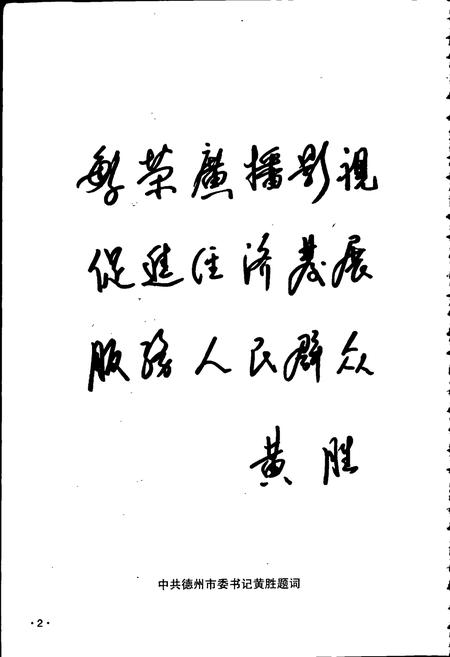 繁荣廣播影視
促進经济发展
服務人民群众
黄胜
中共德州市委书记黄胜题词
·2·